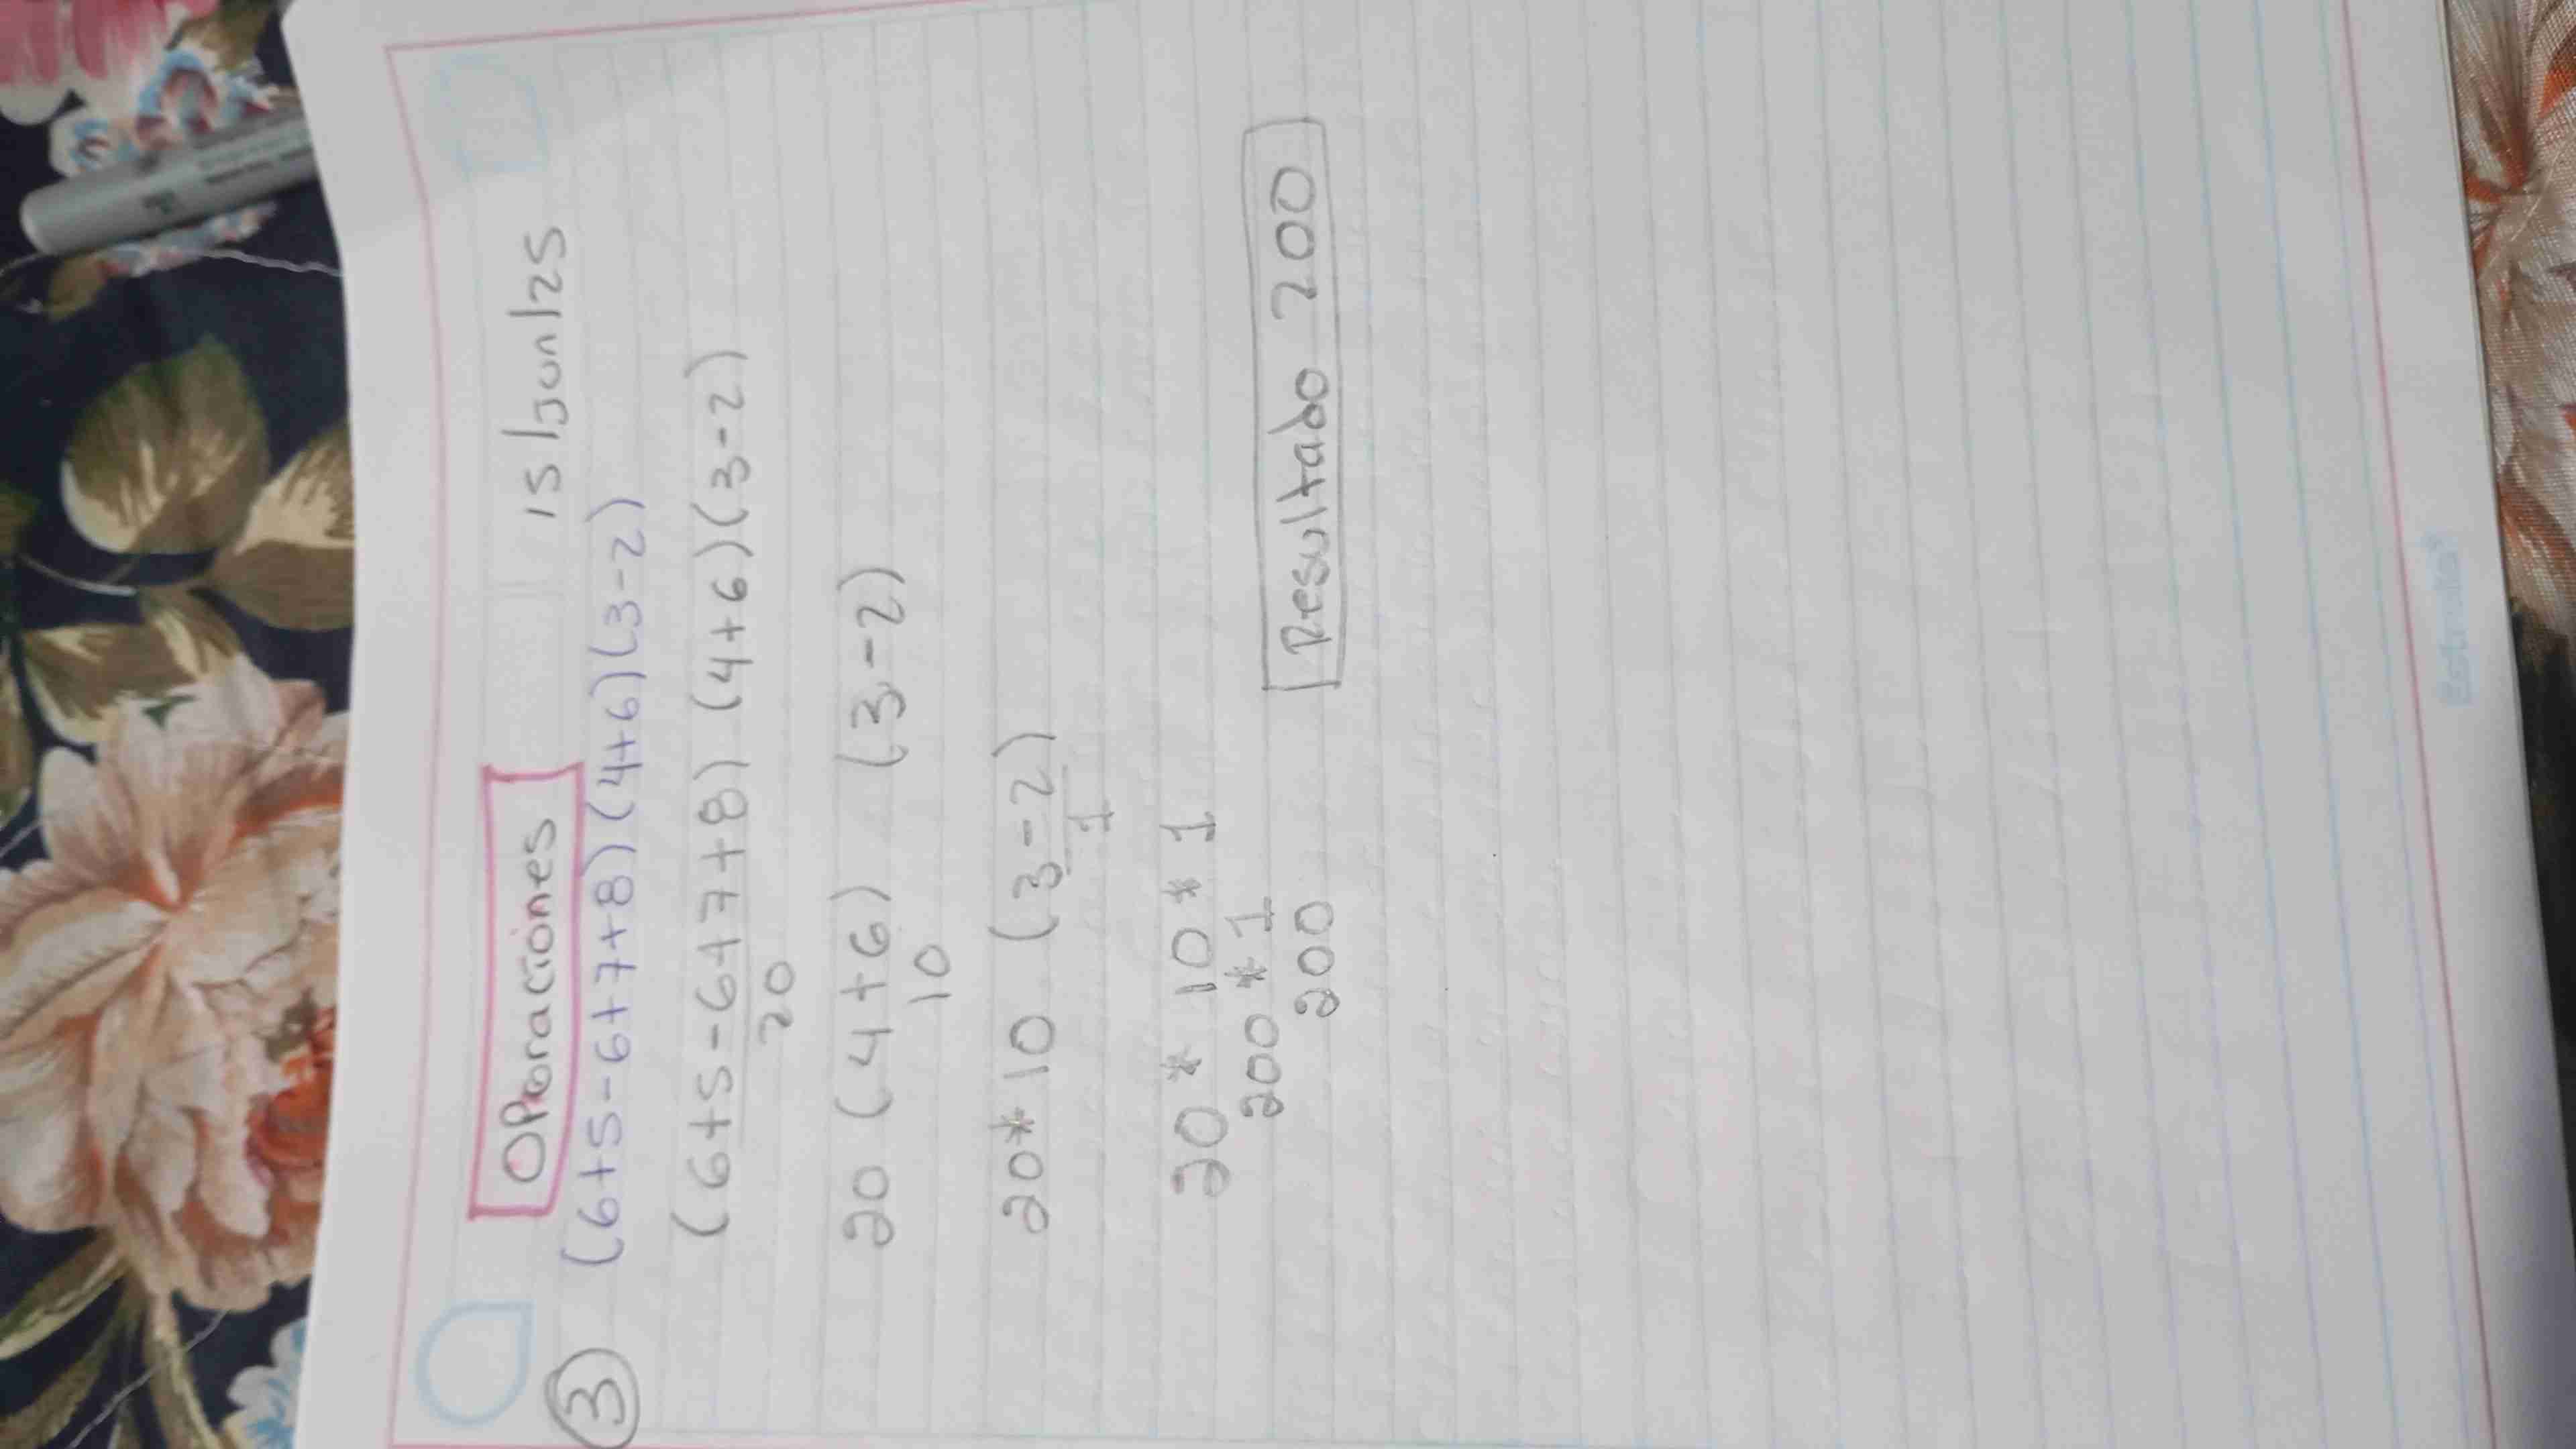 OPeraciones 15/Jun/25
③ (6+5-6+7+8)(4+6)(3-2)
(6+5-6+7+8) (4+6)(3-2)
20
20 (4+6) (3-2)
10
20*10 (3-2)
1
20*10*1
200*1
200
Resultado 200
Estrella®